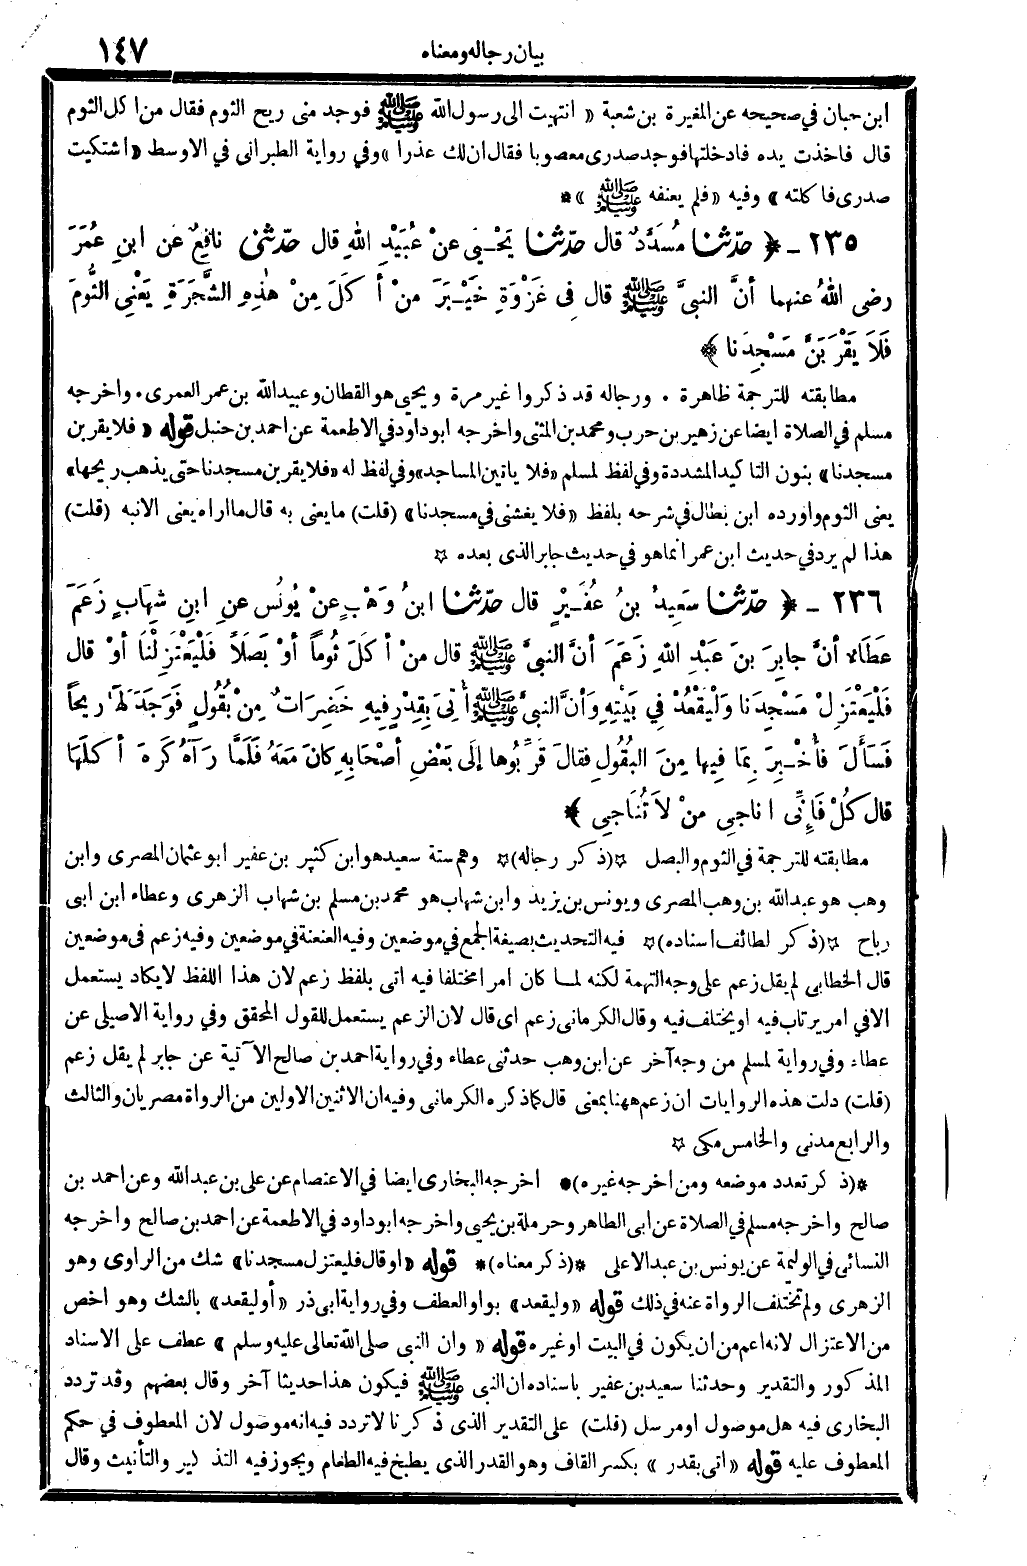 بيان رجاله ومعناه ١٤٧
ابن حبان في صحيحه عن المغيرة بن شعبة « انتهيت الى رسول الله ﷺ فوجد منى ريح الثوم فقال من اكل الثوم
قال فاخذت يده فادخلتها فوجد صدرى معصوبا فقال ان لك عذرا » وفي رواية الطبرانى في الاوسط « اشتكيت
صدرى فاكلته » وفيه « فلم يعنفه ﷺ » *
٢٣٥ - ﴿ حَدَّثَنَا مُسَدَّدٌ قال حَدَّثَنَا يَحْيَى عَنْ عُبَيْدِ اللهِ قال حَدَّثَنِي نافِعٌ عَنِ ابنِ عُمَرَ
رضى اللهُ عنهما أنَّ النبيَّ ﷺ قال فِى غَزْوَةِ خَيْبَرَ مَنْ أكَلَ مِنْ هٰذِهِ الشَّجَرَةِ يَعْنِى الثُّومَ
فَلاَ يَقْرَبَنَّ مَسْجِدَنا ﴾
مطابقته للترجمة ظاهرة . ورجاله قد ذكروا غير مرة ويحيى هو القطان وعبيد الله بن عمر العمرى . واخرجه
مسلم في الصلاة ايضا عن زهير بن حرب ومحمد بن المثنى واخرجه ابو داود في الاطعمة عن احمد بن حنبل قوله « فلا يقربن
مسجدنا » بنون التاكيد المشددة وفي لفظ لمسلم « فلا ياتين المساجد » وفي لفظ له « فلا يقربن مسجدنا حتى يذهب ريحها »
يعنى الثوم واورده ابن بطال في شرحه بلفظ « فلا يغشنى في مسجدنا » (قلت) ما يعنى به قال ما اراه يعنى الا نيه (قلت)
هذا لم يرد في حديث ابن عمر انما هو في حديث جابر الذى بعده ✡
٢٣٦ - ﴿ حَدَّثَنَا سَعِيدُ بنُ عُفَيْرٍ قال حَدَّثَنَا ابنُ وَهْبٍ عنْ يُونُسَ عنِ ابنِ شِهَابٍ زَعَمَ
عَطَاءٌ أنَّ جابِرَ بنَ عَبْدِ اللهِ زَعَمَ أنَّ النبيَّ ﷺ قال مَنْ أكَلَ ثُوماً أوْ بَصَلاً فَلْيَعْتَزِلْنَا أوْ قال
فَلْيَعْتَزِلْ مَسْجِدَنا وَلْيَقْعُدْ فِي بَيْتِهِ وَأنَّ النبيَّ ﷺ أُتِىَ بِقِدْرٍ فِيهِ خَضِرَاتٌ مِنْ بُقُولٍ فَوَجَدَ لَهَا رِيحاً
فَسَألَ فَأُخْبِرَ بِمَا فِيها مِنَ البُقُولِ فقالَ قَرِّبُوها إلَى بَعْضِ أصْحَابِهِ كانَ مَعَهُ فَلَمَّا رَآهُ كَرِهَ أكْلَهَا
قال كُلْ فَإنِّى اُناجِى مَنْ لاَ تُنَاجِى ﴾
مطابقته للترجمة في الثوم والبصل ✡(ذكر رجاله)✡ وهم ستة سعيد هو ابن كثير بن عفير ابو عثمان المصرى وابن
وهب هو عبد الله بن وهب المصرى ويونس بن يزيد وابن شهاب هو محمد بن مسلم بن شهاب الزهرى وعطاء ابن ابى
رباح ✡(ذكر لطائف اسناده)✡ فيه التحديث بصيغة الجمع في موضعين وفيه العنعنة في موضعين وفيه زعم فى موضعين
قال الخطابى لم يقل زعم على وجه التهمة لكنه لما كان امرا مختلفا فيه اتى بلفظ زعم لان هذا اللفظ لا يكاد يستعمل
الا في امر يرتاب فيه او يختلف فيه وقال الكرمانى زعم اى قال لان الزعم يستعمل للقول المحقق وفي رواية الاصيلى عن
عطاء وفي رواية لمسلم من وجه آخر عن ابن وهب حدثنى عطاء وفي رواية احمد بن صالح الآتية عن جابر لم يقل زعم
(قلت) دلت هذه الروايات ان زعم ههنا بمعنى قال كما ذكره الكرمانى وفيه ان الاثنين الاولين من الرواة مصريان والثالث
والرابع مدنى والخامس مكى ✡
*(ذكر تعدد موضعه ومن اخرجه غيره)* اخرجه البخارى ايضا في الاعتصام عن على بن عبد الله وعن احمد بن
صالح واخرجه مسلم في الصلاة عن ابى الطاهر وحرملة بن يحيى واخرجه ابو داود في الاطعمة عن احمد بن صالح واخرجه
النسائى في الوليمة عن يونس بن عبد الاعلى *(ذكر معناه)* قوله « او قال فليعتزل مسجدنا » شك من الراوى وهو
الزهرى ولم تختلف الرواة عنه في ذلك قوله « وليقعد » بواو العطف وفي رواية ابى ذر « أو ليقعد » بالشك وهو اخص
من الاعتزال لانه اعم من ان يكون في البيت او غيره قوله « وان النبى صلى الله تعالى عليه وسلم » عطف على الاسناد
المذكور والتقدير وحدثنا سعيد بن عفير باسناده ان النبى ﷺ فيكون هذا حديثا آخر وقال بعضهم وقد تردد
البخارى فيه هل موصول او مرسل (قلت) على التقدير الذى ذكرنا لا تردد فيه انه موصول لان المعطوف في حكم
المعطوف عليه قوله « اتى بقدر » بكسر القاف وهو القدر الذى يطبخ فيه الطعام ويجوز فيه التذكير والتأنيث وقال